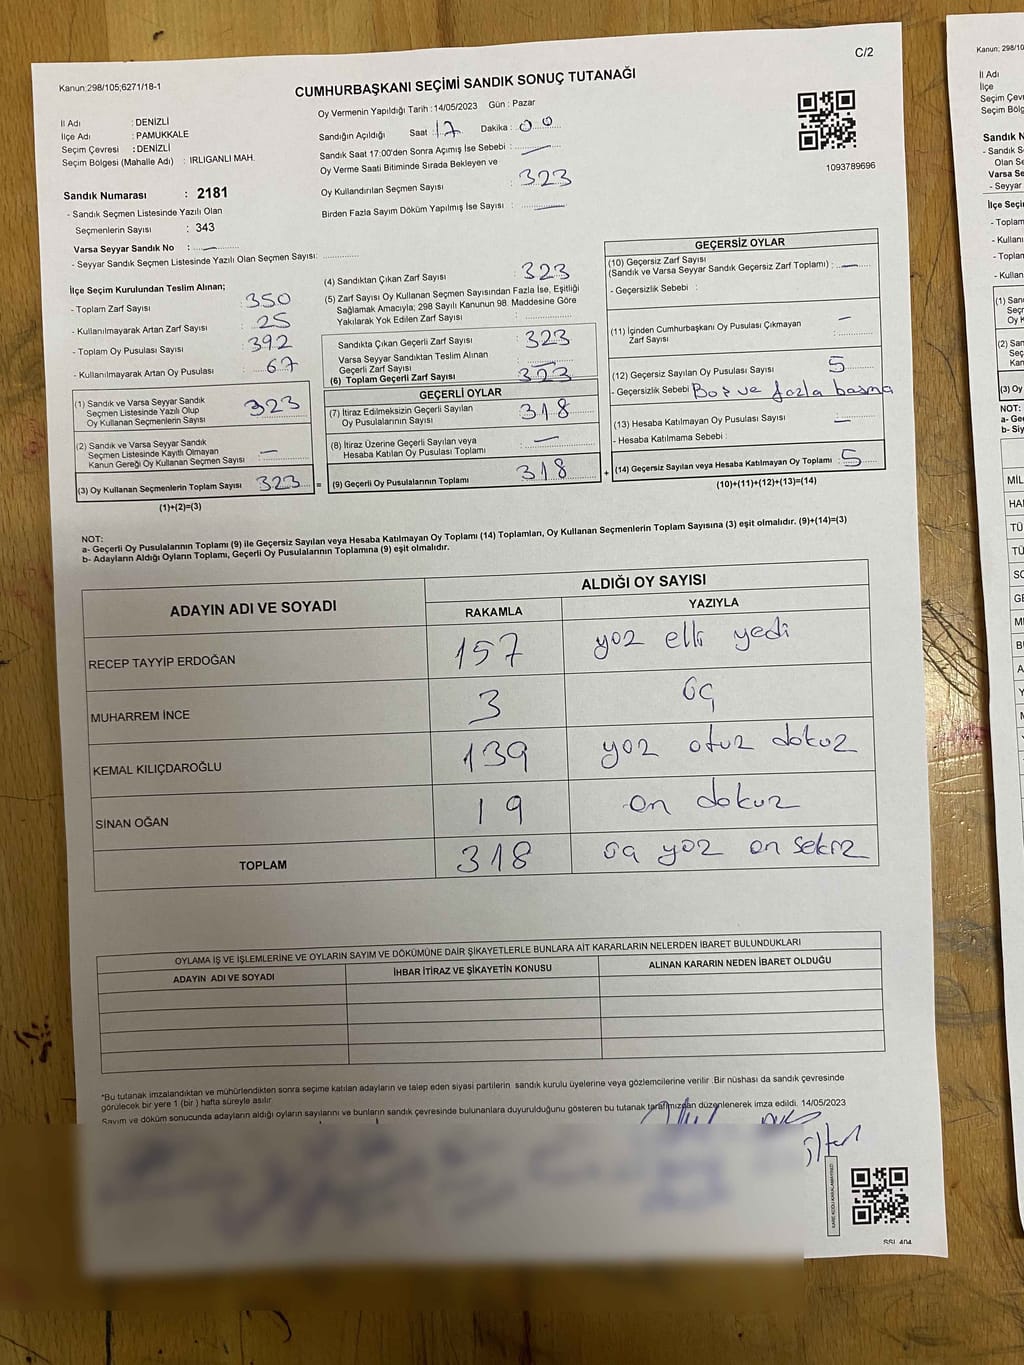 C/2
Kanun;298/105;6271/18-1
CUMHURBAŞKANI SEÇİMİ SANDIK SONUÇ TUTANAĞI
İl Adı : DENİZLİ
İlçe Adı : PAMUKKALE
Seçim Çevresi : DENİZLİ
Seçim Bölgesi (Mahalle Adı) : IRLIGANLI MAH.
Sandık Numarası : 2181
- Sandık Seçmen Listesinde Yazılı Olan
Seçmenlerin Sayısı : 343
Varsa Seyyar Sandık No : —
- Seyyar Sandık Seçmen Listesinde Yazılı Olan Seçmen Sayısı:
Oy Vermenin Yapıldığı Tarih : 14/05/2023 Gün : Pazar
Sandığın Açıldığı Saat : 17 Dakika : 00
Sandık Saat 17:00'den Sonra Açımış İse Sebebi : —
Oy Verme Saati Bitiminde Sırada Bekleyen ve
Oy Kullandırılan Seçmen Sayısı : 323
Birden Fazla Sayım Döküm Yapılmış İse Sayısı : —
1093789696
İlçe Seçim Kurulundan Teslim Alınan;
- Toplam Zarf Sayısı : 350
- Kullanılmayarak Artan Zarf Sayısı : 25
- Toplam Oy Pusulası Sayısı : 392
- Kullanılmayarak Artan Oy Pusulası : 67
(1) Sandık ve Varsa Seyyar Sandık
Seçmen Listesinde Yazılı Olup
Oy Kullanan Seçmenlerin Sayısı : 323
(2) Sandık ve Varsa Seyyar Sandık
Seçmen Listesinde Kayıtlı Olmayan
Kanun Gereği Oy Kullanan Seçmen Sayısı : —
(3) Oy Kullanan Seçmenlerin Toplam Sayısı 323 =
(1)+(2)=(3)
(4) Sandıktan Çıkan Zarf Sayısı : 323
(5) Zarf Sayısı Oy Kullanan Seçmen Sayısından Fazla İse, Eşitliği
Sağlamak Amacıyla; 298 Sayılı Kanunun 98. Maddesine Göre
Yakılarak Yok Edilen Zarf Sayısı :
Sandıkta Çıkan Geçerli Zarf Sayısı : 323
Varsa Seyyar Sandıktan Teslim Alınan
Geçerli Zarf Sayısı : —
(6) Toplam Geçerli Zarf Sayısı : 323
GEÇERLİ OYLAR
(7) İtiraz Edilmeksizin Geçerli Sayılan
Oy Pusulalarının Sayısı : 318
(8) İtiraz Üzerine Geçerli Sayılan veya
Hesaba Katılan Oy Pusulası Toplamı : —
(9) Geçerli Oy Pusulalarının Toplamı : 318 +
GEÇERSİZ OYLAR
(10) Geçersiz Zarf Sayısı
(Sandık ve Varsa Seyyar Sandık Geçersiz Zarf Toplamı) : —
- Geçersizlik Sebebi :
(11) İçinden Cumhurbaşkanı Oy Pusulası Çıkmayan
Zarf Sayısı : —
(12) Geçersiz Sayılan Oy Pusulası Sayısı : 5
- Geçersizlik Sebebi : Boş ve fazla basma
(13) Hesaba Katılmayan Oy Pusulası Sayısı : —
- Hesaba Katılmama Sebebi :
(14) Geçersiz Sayılan veya Hesaba Katılmayan Oy Toplamı : 5
(10)+(11)+(12)+(13)=(14)
NOT:
a- Geçerli Oy Pusulalarının Toplamı (9) ile Geçersiz Sayılan veya Hesaba Katılmayan Oy Toplamı (14) Toplamları, Oy Kullanan Seçmenlerin Toplam Sayısına (3) eşit olmalıdır. (9)+(14)=(3)
b- Adayların Aldığı Oyların Toplamı, Geçerli Oy Pusulalarının Toplamına (9) eşit olmalıdır.
ADAYIN ADI VE SOYADI ALDIĞI OY SAYISI
RAKAMLA YAZIYLA
RECEP TAYYİP ERDOĞAN 157 yüz elli yedi
MUHARREM İNCE 3 üç
KEMAL KILIÇDAROĞLU 139 yüz otuz dokuz
SİNAN OĞAN 19 on dokuz
TOPLAM 318 üç yüz on sekiz
OYLAMA İŞ VE İŞLEMLERİNE VE OYLARIN SAYIM VE DÖKÜMÜNE DAİR ŞİKAYETLERLE BUNLARA AİT KARARLARIN NELERDEN İBARET BULUNDUKLARI
ADAYIN ADI VE SOYADI İHBAR İTİRAZ VE ŞİKAYETİN KONUSU ALINAN KARARIN NEDEN İBARET OLDUĞU
*Bu tutanak imzalandıktan ve mühürlendikten sonra seçime katılan adayların ve talep eden siyasi partilerin sandık kurulu üyelerine veya gözlemcilerine verilir .Bir nüshası da sandık çevresinde
görülecek bir yere 1 (bir ) hafta süreyle asılır.
Sayım ve döküm sonucunda adayların aldığı oyların sayılarını ve bunların sandık çevresinde bulunanlara duyurulduğunu gösteren bu tutanak tarafımızdan düzenlenerek imza edildi. 14/05/2023
Kanun; 298/10
İl Adı
İlçe
Seçim Çevr
Seçim Bölg
Sandık N